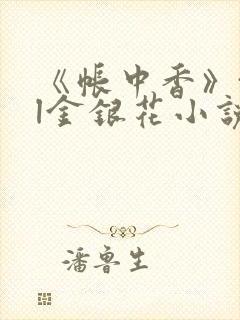 《帳中香》
|金銀花小說
潘魯生